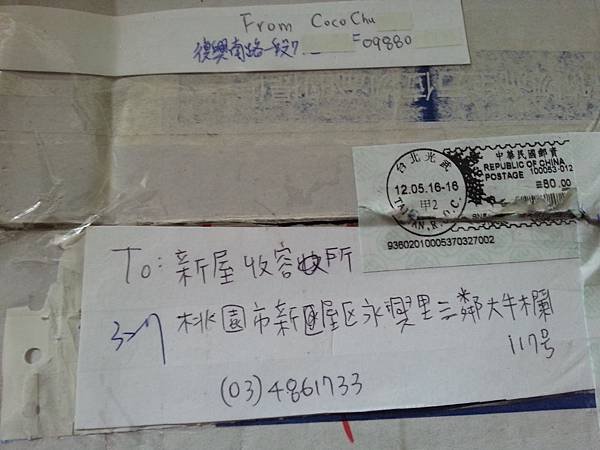 From CocoChu
復興南路一段7
09880
中華民國郵資
REPUBLIC OF CHINA
POSTAGE 100053-012
80.00
台北光武
12.05.16-16
甲2
TAIWAN, R.O.C.
93602010005370327002
To: 新屋收容所
桃園市新屋区永興里三鄰大牛欄
117号
(03)4861733